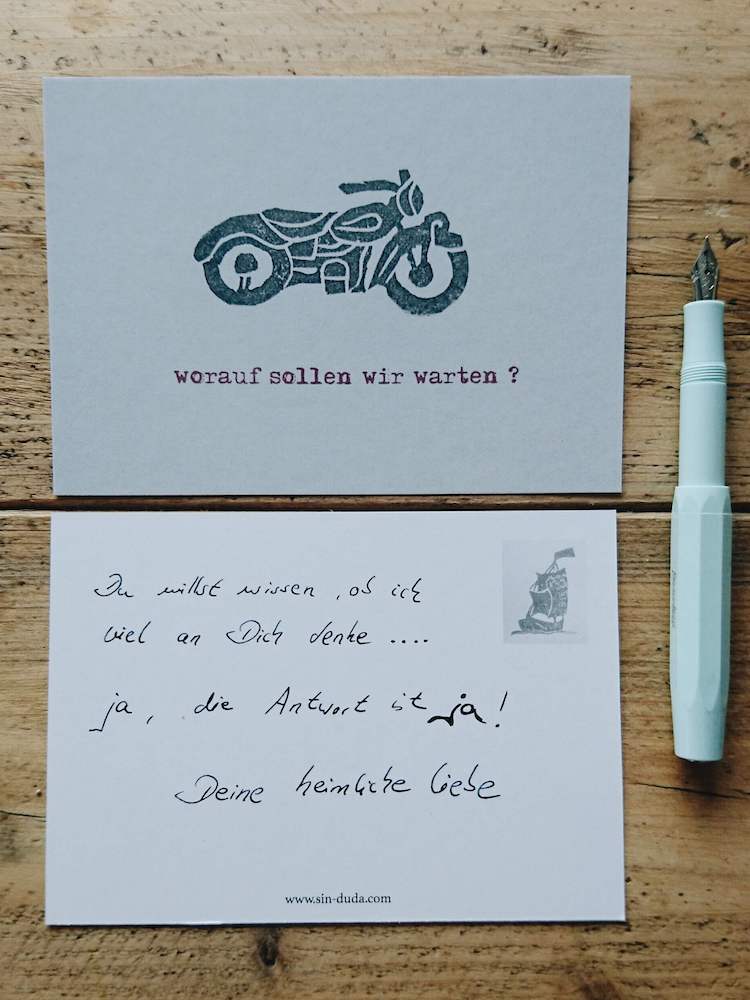 worauf sollen wir warten ?
Du willst wissen , ob ich
viel an Dich denke ....
ja, die Antwort ist ja!
Deine heimliche Liebe
www.sin-duda.com